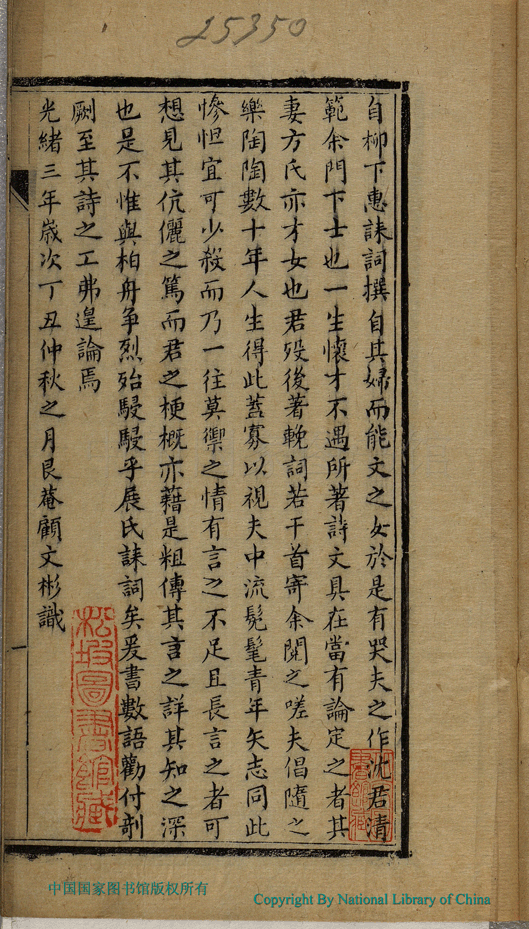 25350
自柳下惠誄詞撰自其婦而能文之女於是有哭夫之作沈君清
範余門下士也一生懷才不遇所著詩文具在當有論定之者其
妻方氏亦才女也君歿後著輓詞若干首寄余閱之嗟夫倡隨之
樂陶陶數十年人生得此蓋寡以視夫中流髧髦青年矢志同此
慘怛宜可少殺而乃一往莫禦之情有言之不足且長言之者可
想見其伉儷之篤而君之梗概亦藉是粗傳其言之詳其知之深
也是不惟與柏舟爭烈殆駸駸乎展氏誄詞矣爰書數語勸付剞
劂至其詩之工弗遑論焉
光緒三年歲次丁丑仲秋之月艮菴顧文彬識
一
松坡圖書館藏
中国国家图书馆版权所有
Copyright By National Library of China